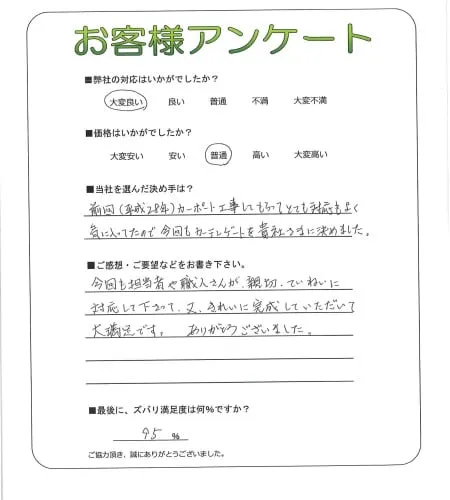 お客様アンケート
■弊社の対応はいかがでしたか?
大変良い 良い 普通 不満 大変不満
■価格はいかがでしたか?
大変安い 安い 普通 高い 大変高い
■当社を選んだ決め手は?
前回(平成28年)カーポート工事してもらってとても対応もよく
気に入ってたので今回もカーテンゲートを貴社さまに決めました。
■ご感想・ご要望などをお書き下さい。
今回も担当者や職人さんが、親切、ていねいに
対応して下さって、又、きれいに完成していただいて
大満足です。 ありがとうございました。
■最後に、ズバリ満足度は何%ですか?
95 %
ご協力頂き、誠にありがとうございました。